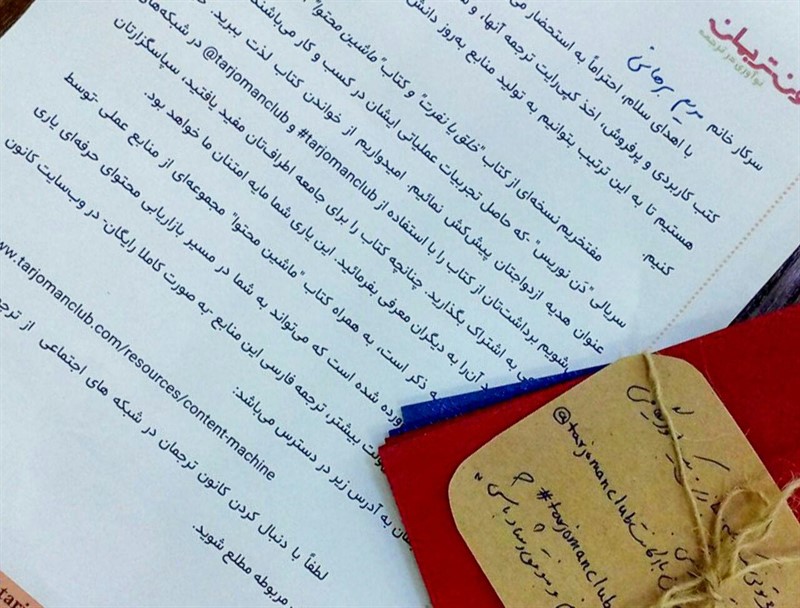 نوآوری در ترجمه
سرکار خانم مریم
با اهدای سلام، احتراماً به استحضار
کتب کاربردی و پرفروش، اخذ کپی‌رایت ترجمه آنها، و
هستیم تا به این ترتیب بتوانیم به تولید منابع به‌روز دانش
کنیم.
مفتخریم نسخه‌ای از کتاب "خلق یا نفرت" و کتاب "ماشین محتوا"
سریالی "دَن نوریس" -که حاصل تجربیات عملیاتی ایشان در کسب و کار می‌باشند
عنوان هدیه ازدواجتان پیش‌کش نمائیم. امیدواریم از خواندن کتاب لذت ببرید.
شویم برداشت‌تان از کتاب را با استفاده از #tarjomanclub و @tarjomanclub در شبکه‌های
به اشتراک بگذارید. چنانچه کتاب را برای جامعه اطراف‌تان مفید یافتید، سپاسگزارتان
آن‌را به دیگران معرفی بفرمائید. این یاری شما مایه امتنان ما خواهد بود.
ذکر است، به همراه کتاب "ماشین محتوا" مجموعه‌ای از منابع عملی -توسط
آورده شده است که می‌تواند به شما در مسیر بازاریابی محتوای حرفه‌ای یاری
بیشتر، ترجمه فارسی این منابع -به صورت کاملا رایگان- در وب‌سایت کانون
به آدرس زیر در دسترس می‌باشد:
www.tarjomanclub.com/resources/content-machine
لطفاً با دنبال کردن کانون ترجمان در شبکه های اجتماعی از
مربوطه مطلع شوید.
@tarjomanclub
#tarjomanclub